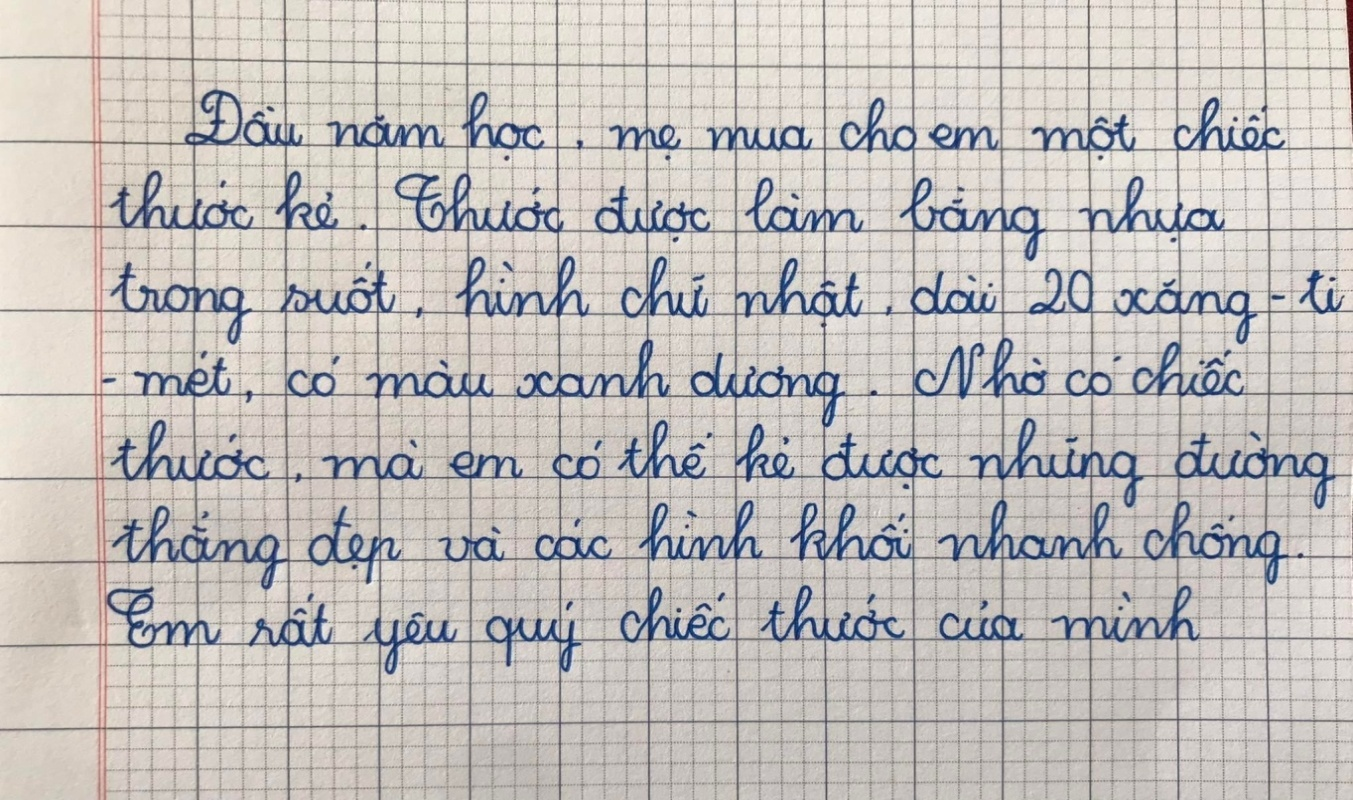 Đầu năm học, mẹ mua cho em một chiếc
thước kẻ. Thước được làm bằng nhựa
trong suốt, hình chữ nhật, dài 20 xăng - ti
- mét, có màu xanh dương. Nhờ có chiếc
thước, mà em có thể kẻ được những đường
thẳng đẹp và các hình khối nhanh chóng.
Em rất yêu quý chiếc thước của mình